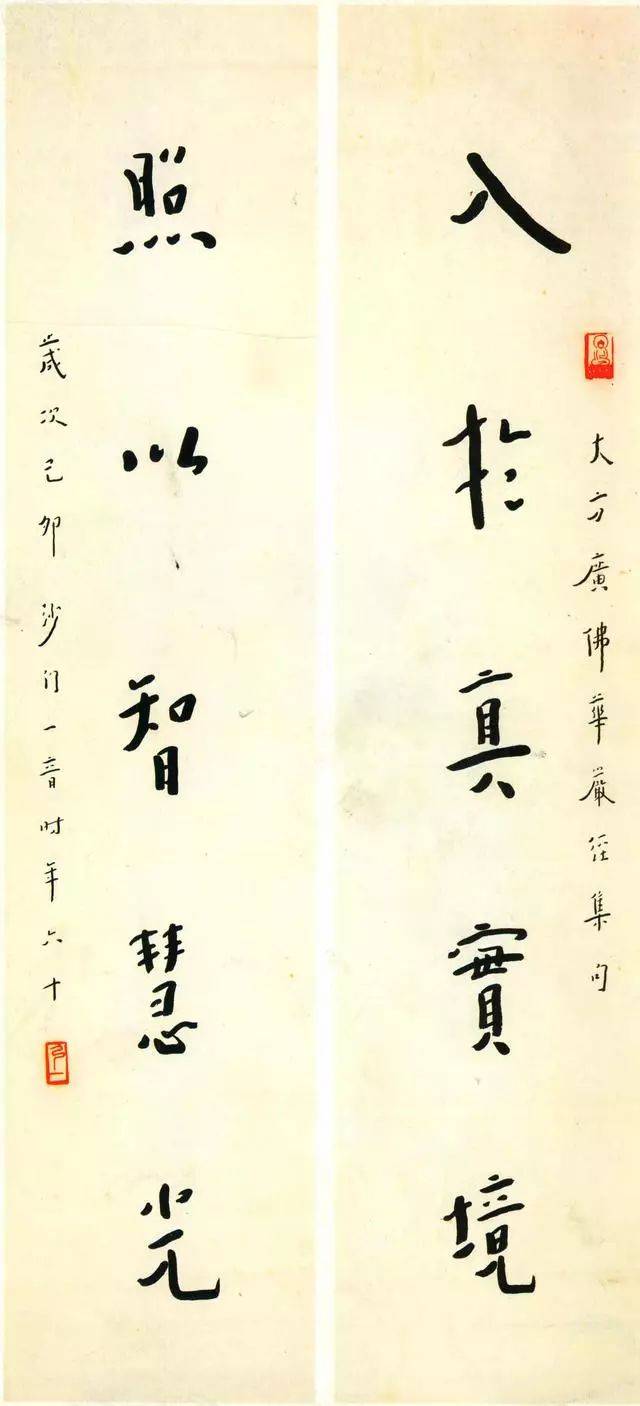 大方廣佛華嚴經集句
入於真實境
照以智慧光
歲次己卯沙門一音時年六十